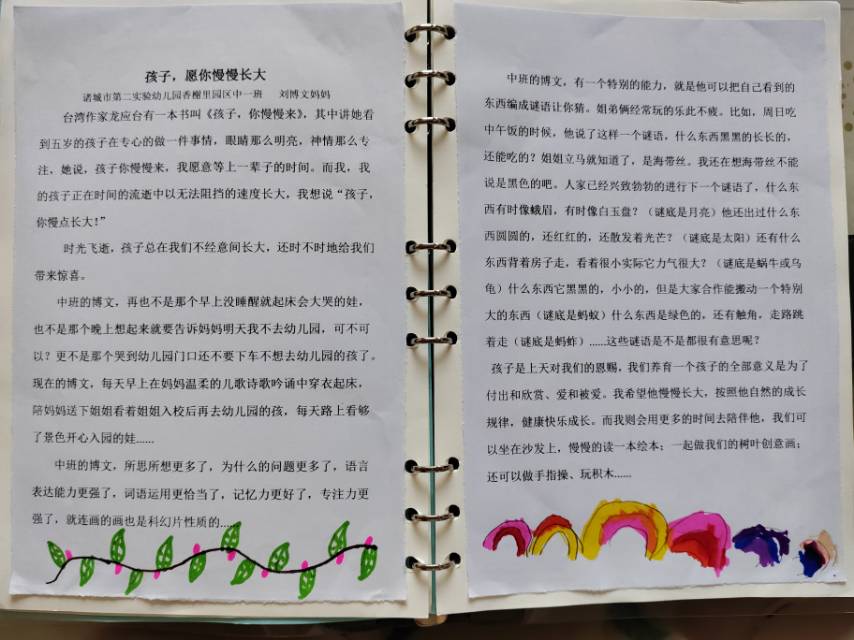 孩子，愿你慢慢长大
诸城市第二实验幼儿园香榭里园区中一班 刘博文妈妈
台湾作家龙应台有一本书叫《孩子，你慢慢来》，其中讲她看
到五岁的孩子在专心的做一件事情，眼睛那么明亮，神情那么专
注，她说，孩子你慢慢来，我愿意等上一辈子的时间。而我，我
的孩子正在时间的流逝中以无法阻挡的速度长大，我想说“孩子，
你慢点长大！”
时光飞逝，孩子总在我们不经意间长大，还时不时地给我们
带来惊喜。
中班的博文，再也不是那个早上没睡醒就起床会大哭的娃，
也不是那个晚上想起来就要告诉妈妈明天我不去幼儿园，可不可
以？更不是那个哭到幼儿园门口还不要下车不想去幼儿园的孩了。
现在的博文，每天早上在妈妈温柔的儿歌诗歌吟诵中穿衣起床，
陪妈妈送下姐姐看着姐姐入校后再去幼儿园的孩，每天路上看够
了景色开心入园的娃......
中班的博文，所思所想更多了，为什么的问题更多了，语言
表达能力更强了，词语运用更恰当了，记忆力更好了，专注力更
强了，就连画的画也是科幻片性质的......
中班的博文，有一个特别的能力，就是他可以把自己看到的
东西编成谜语让你猜。姐弟俩经常玩的乐此不疲。比如，周日吃
中午饭的时候，他说了这样一个谜语，什么东西黑黑的长长的，
还能吃的？姐姐立马就知道了，是海带丝。我还在想海带丝不能
说是黑色的吧。人家已经兴致勃勃的进行下一个谜语了，什么东
西有时像蛾眉，有时像白玉盘？（谜底是月亮）他还出过什么东
西圆圆的，还红红的，还散发着光芒？（谜底是太阳）还有什么
东西背着房子走，看着很小实际它力气很大？（谜底是蜗牛或乌
龟）什么东西它黑黑的，小小的，但是大家合作能搬动一个特别
大的东西（谜底是蚂蚁）什么东西是绿色的，还有触角，走路跳
着走（谜底是蚂蚱）......这些谜语是不是都很有意思呢？
孩子是上天对我们的恩赐，我们养育一个孩子的全部意义是为了
付出和欣赏、爱和被爱。我希望他慢慢长大，按照他自然的成长
规律，健康快乐成长。而我则会用更多的时间去陪伴他，我们可
以坐在沙发上，慢慢的读一本绘本；一起做我们的树叶创意画；
还可以做手指操、玩积木......